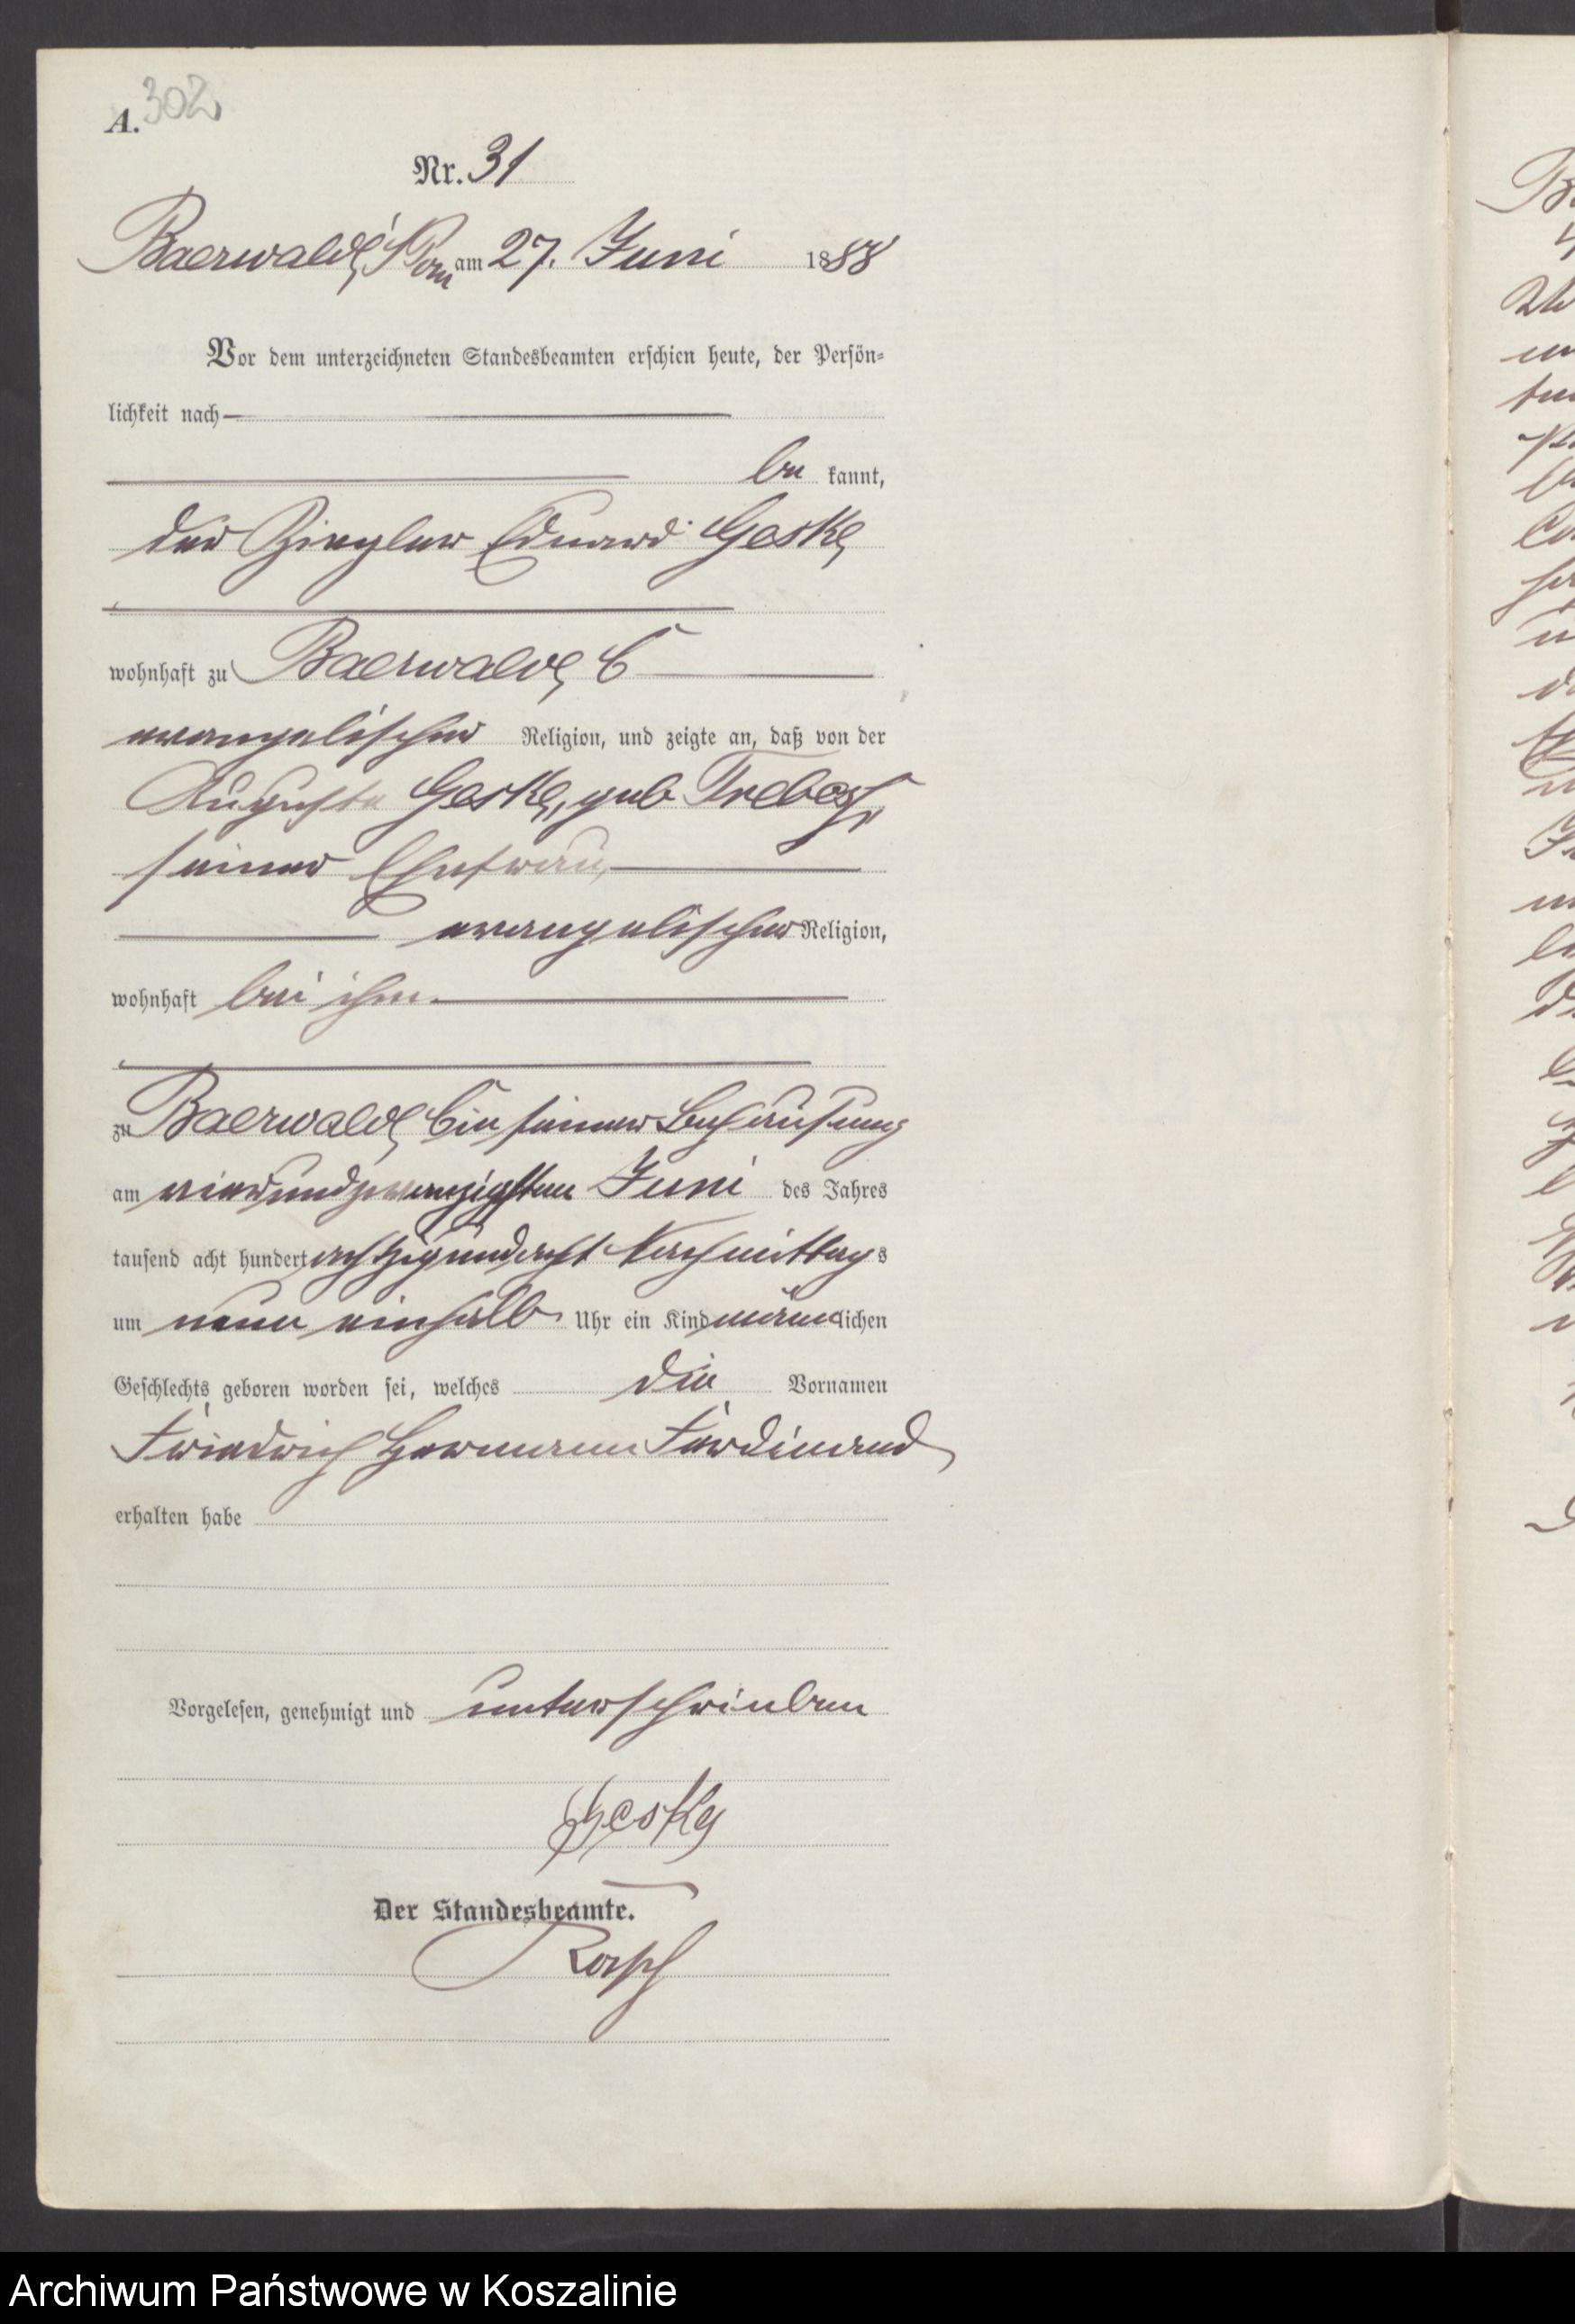 302
A.
Nr. 31
Baerwalde, i/Pom am 27. Juni 1888
Vor dem unterzeichneten Standesbeamten erschien heute, der Persön-
lichkeit nach
be kannt,
der Ziegler Eduard Geske,
wohnhaft zu Baerwalde, C
evangelischer Religion, und zeigte an, daß von der
Auguste Geske, geb
seiner Ehefrau,
evangelischer Religion,
wohnhaft bei ihm.
zu Baerwalde, C in seiner Behausung
am vierundzwanzigsten Juni des Jahres
tausend acht hundert achtzigundacht Nachmittags
um neun einhalb Uhr ein Kind männlichen
Geschlechts geboren worden sei, welches die Vornamen
Friedrich Hermann Ferdinand
erhalten habe
Vorgelesen, genehmigt und unterschrieben
Geske
Der Standesbeamte.
Archiwum Państwowe w Koszalinie